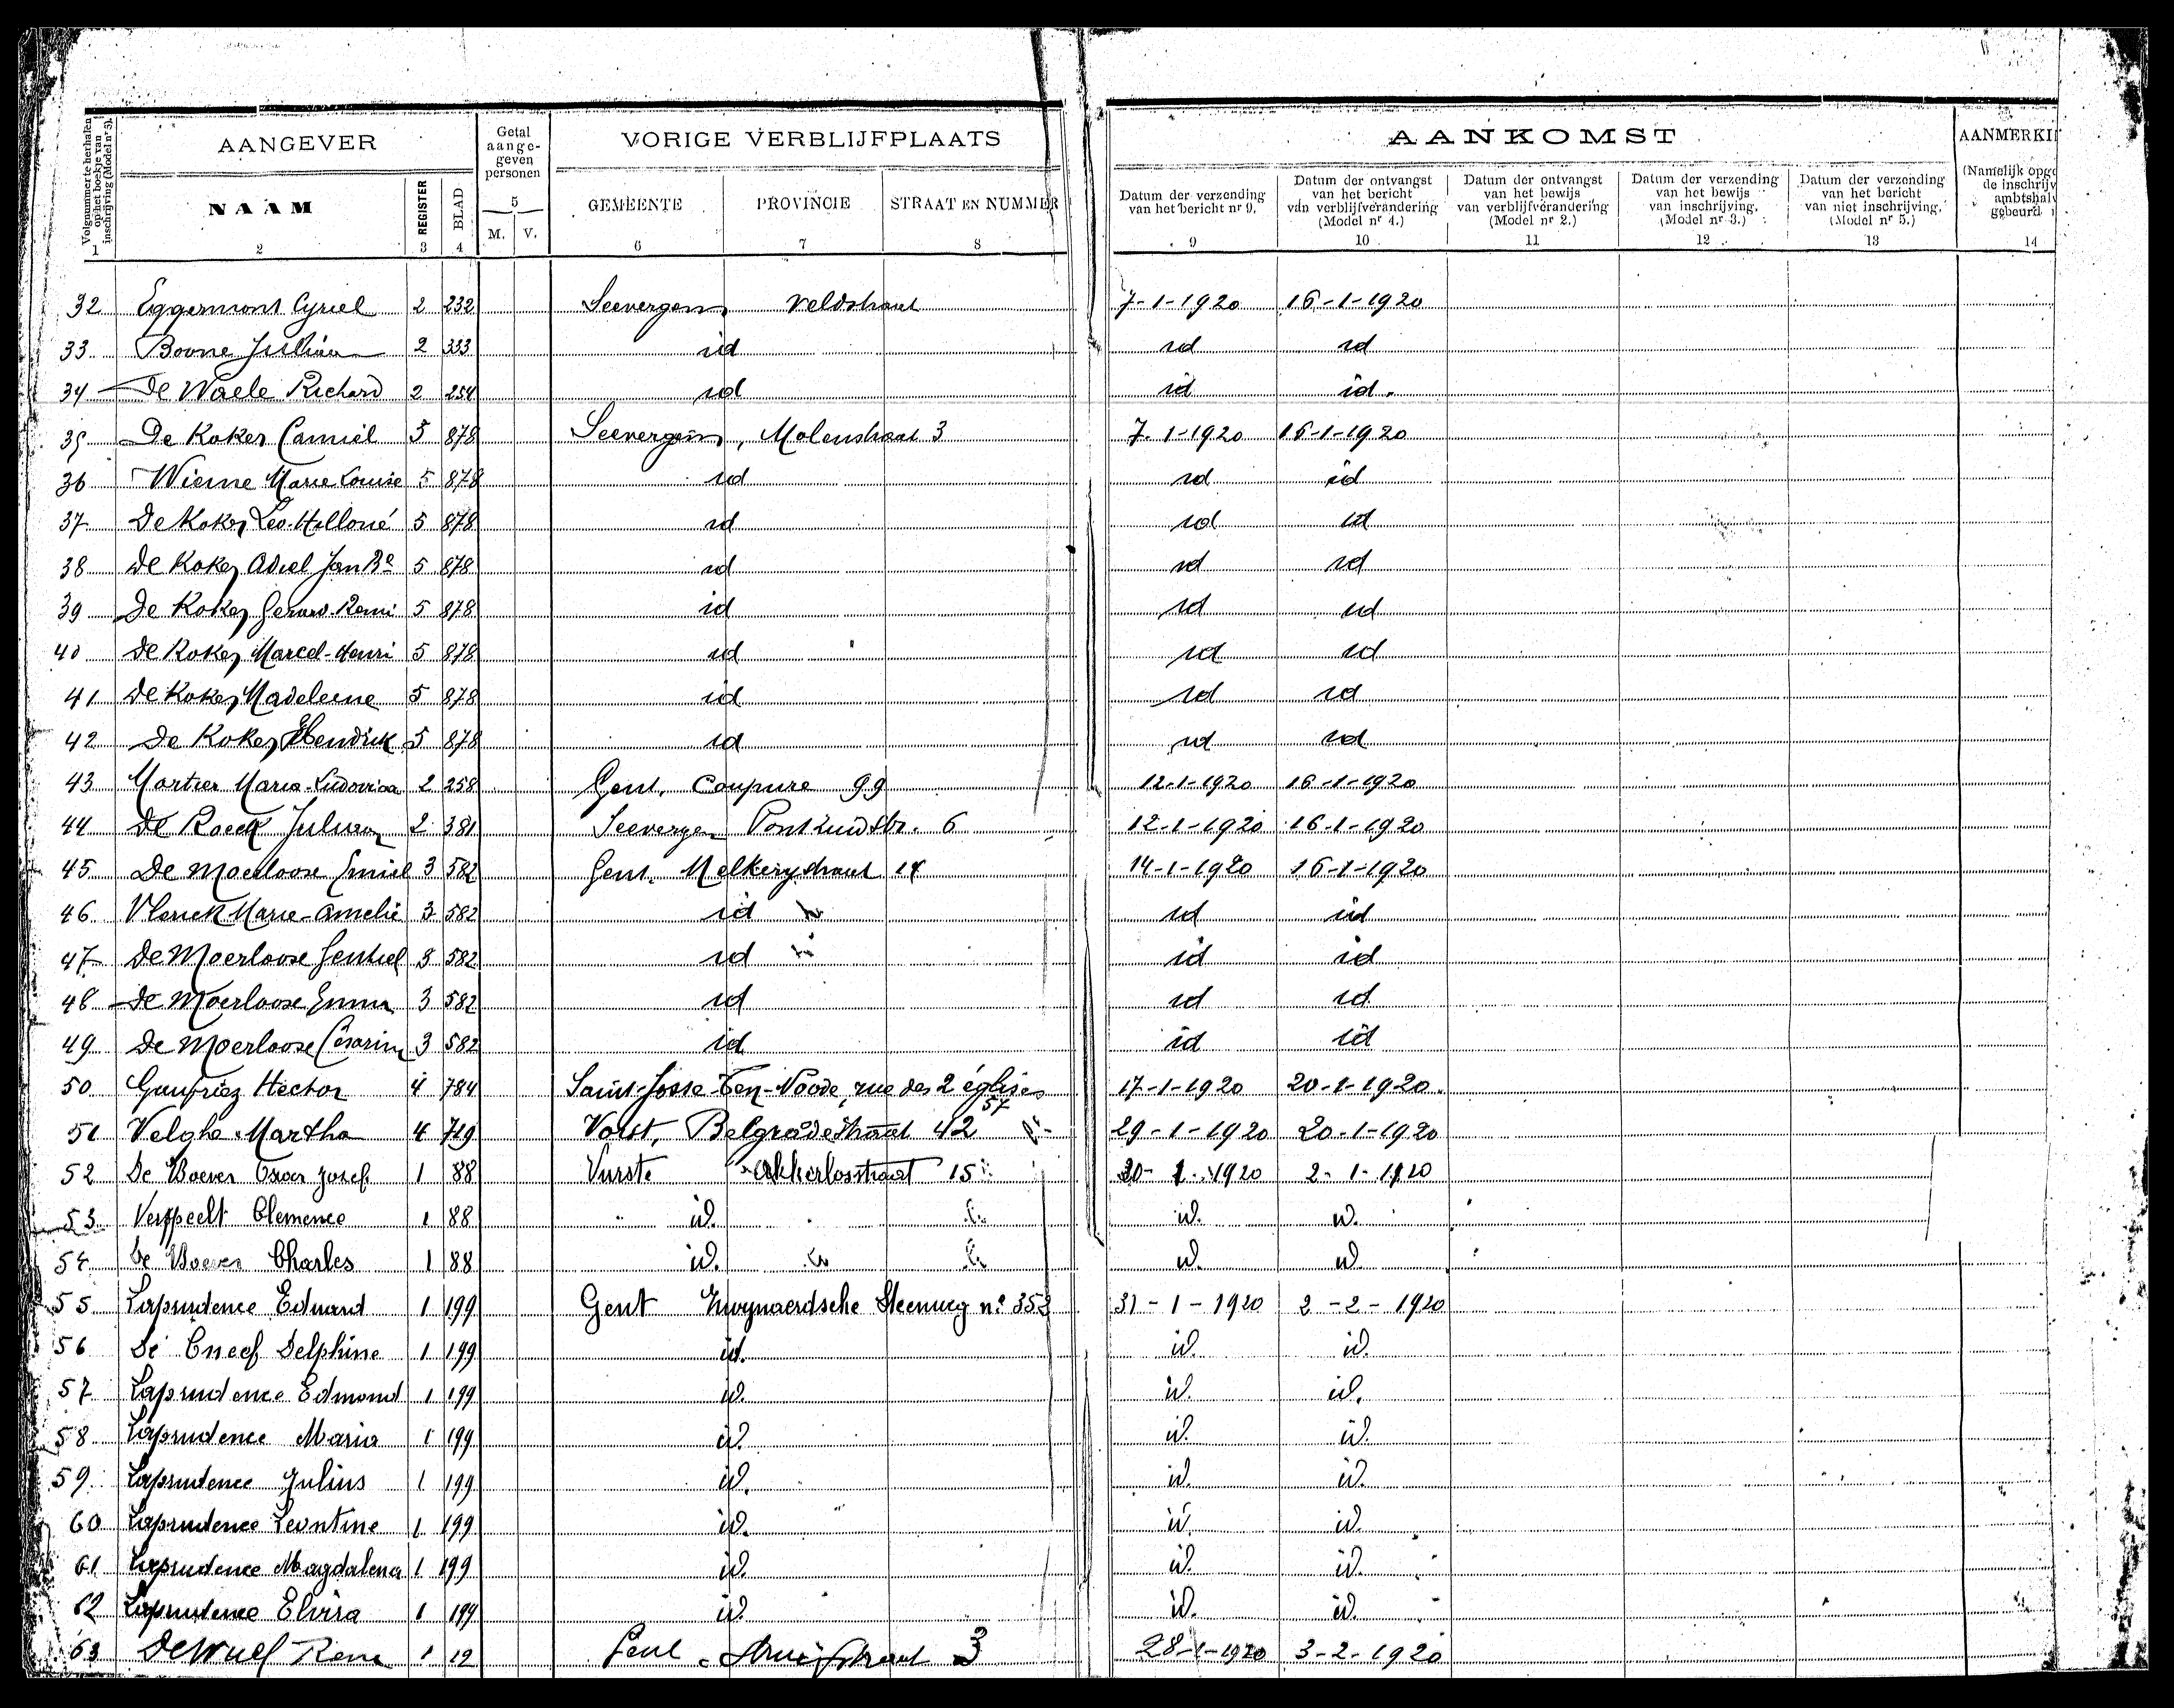 Volgnummer te herhalen op het boekje van inschrijving (Model nr 5).
AANGEVER
Getal aange-geven personen
VORIGE VERBLIJFPLAATS
AANKOMST
NAAM REGISTER BLAD
5
M. V.
GEMEENTE PROVINCIE STRAAT EN NUMMER
Datum der verzending van het bericht nr 9.
Datum der ontvangst van het bericht van verblijfverandering (Model nr 4.)
Datum der ontvangst van het bewijs van verblijfverandering (Model nr 2.)
Datum der verzending van het bewijs van inschrijving. (Model nr 3.)
Datum der verzending van het bericht van niet inschrijving. (Model nr 5.)
(Namelijk
de
gebeurd
1 2 3 4 6 7 8 9 10 11 12 13 14
32 Eggermont Cyriel 2 232 Seevergem Veldstraat 7-1-1920 16-1-1920
33 Boone 2 333 id id id
34 De Waele Richard 2 254 id id id.
35 De Koker Camiel 5 878 Seevergem, Molenstraat 3 7-1-1920 16-1-1920
36 Wieme Marie Louise 5 878 id id id
37 De Koker Leo 5 878 id id id
38 De Koker Adiel Jan Bte 5 878 id id id
39 De Koker Gerard-Remi 5 878 id id id
40 De Koker Marcel-Henri 5 878 id id id
41 De Koker Madeleine 5 878 id id id
42 De Koker Hendrik 5 878 id id id
43 Mortier Maria-Ludovica 2 258 Gent, Coupure 99 12-1-1920 16-1-1920
44 De Raeck 2 381 Seevergem 6 12-1-1920 16-1-1920
45 De Moerloose Emiel 3 582 Gent. 14-1-1920 16-1-1920
46 Marie-Amelie 3 582 id id id
47 De Moerloose Gentiel 3 582 id id id
48 De Moerloose Emma 3 582 id id id
49 De Moerloose Cesarine 3 582 id id id
50 Gaufriez Hector 4 784 Saint-Josse-Ten-Noode, rue des 2 églises 57 17-1-1920 20-1-1920
51 Velghe Martha 4 719 Vorst, Belgradestraat 42 29-1-1920 20-1-1920
52 De Boever Oscar Josef 1 88 Vurste Akkerlosstraat 15 30-1-1920 2-1-1920
53 Verspeelt Clemence 1 88 id. id. id.
54 De Boever Charles 1 88 id. id. id.
55 Laprudence Eduard 1 199 Gent Zwynaerdsche Steenweg n° 352 31-1-1920 2-2-1920
56 De Cneef Delphine 1 199 id. id. id.
57 Laprudence Edmond 1 199 id. id. id.
58 Laprudence Maria 1 199 id. id. id.
59 Laprudence Julius 1 199 id. id. id.
60 Laprudence Leontine 1 199 id. id. id.
61 Laprudence Magdalena 1 199 id. id. id.
62 Laprudence Elvira 1 199 id. id. id.
63 De Wulf Rene 1 12 Gent 3 28-1-1920 3-2-1920